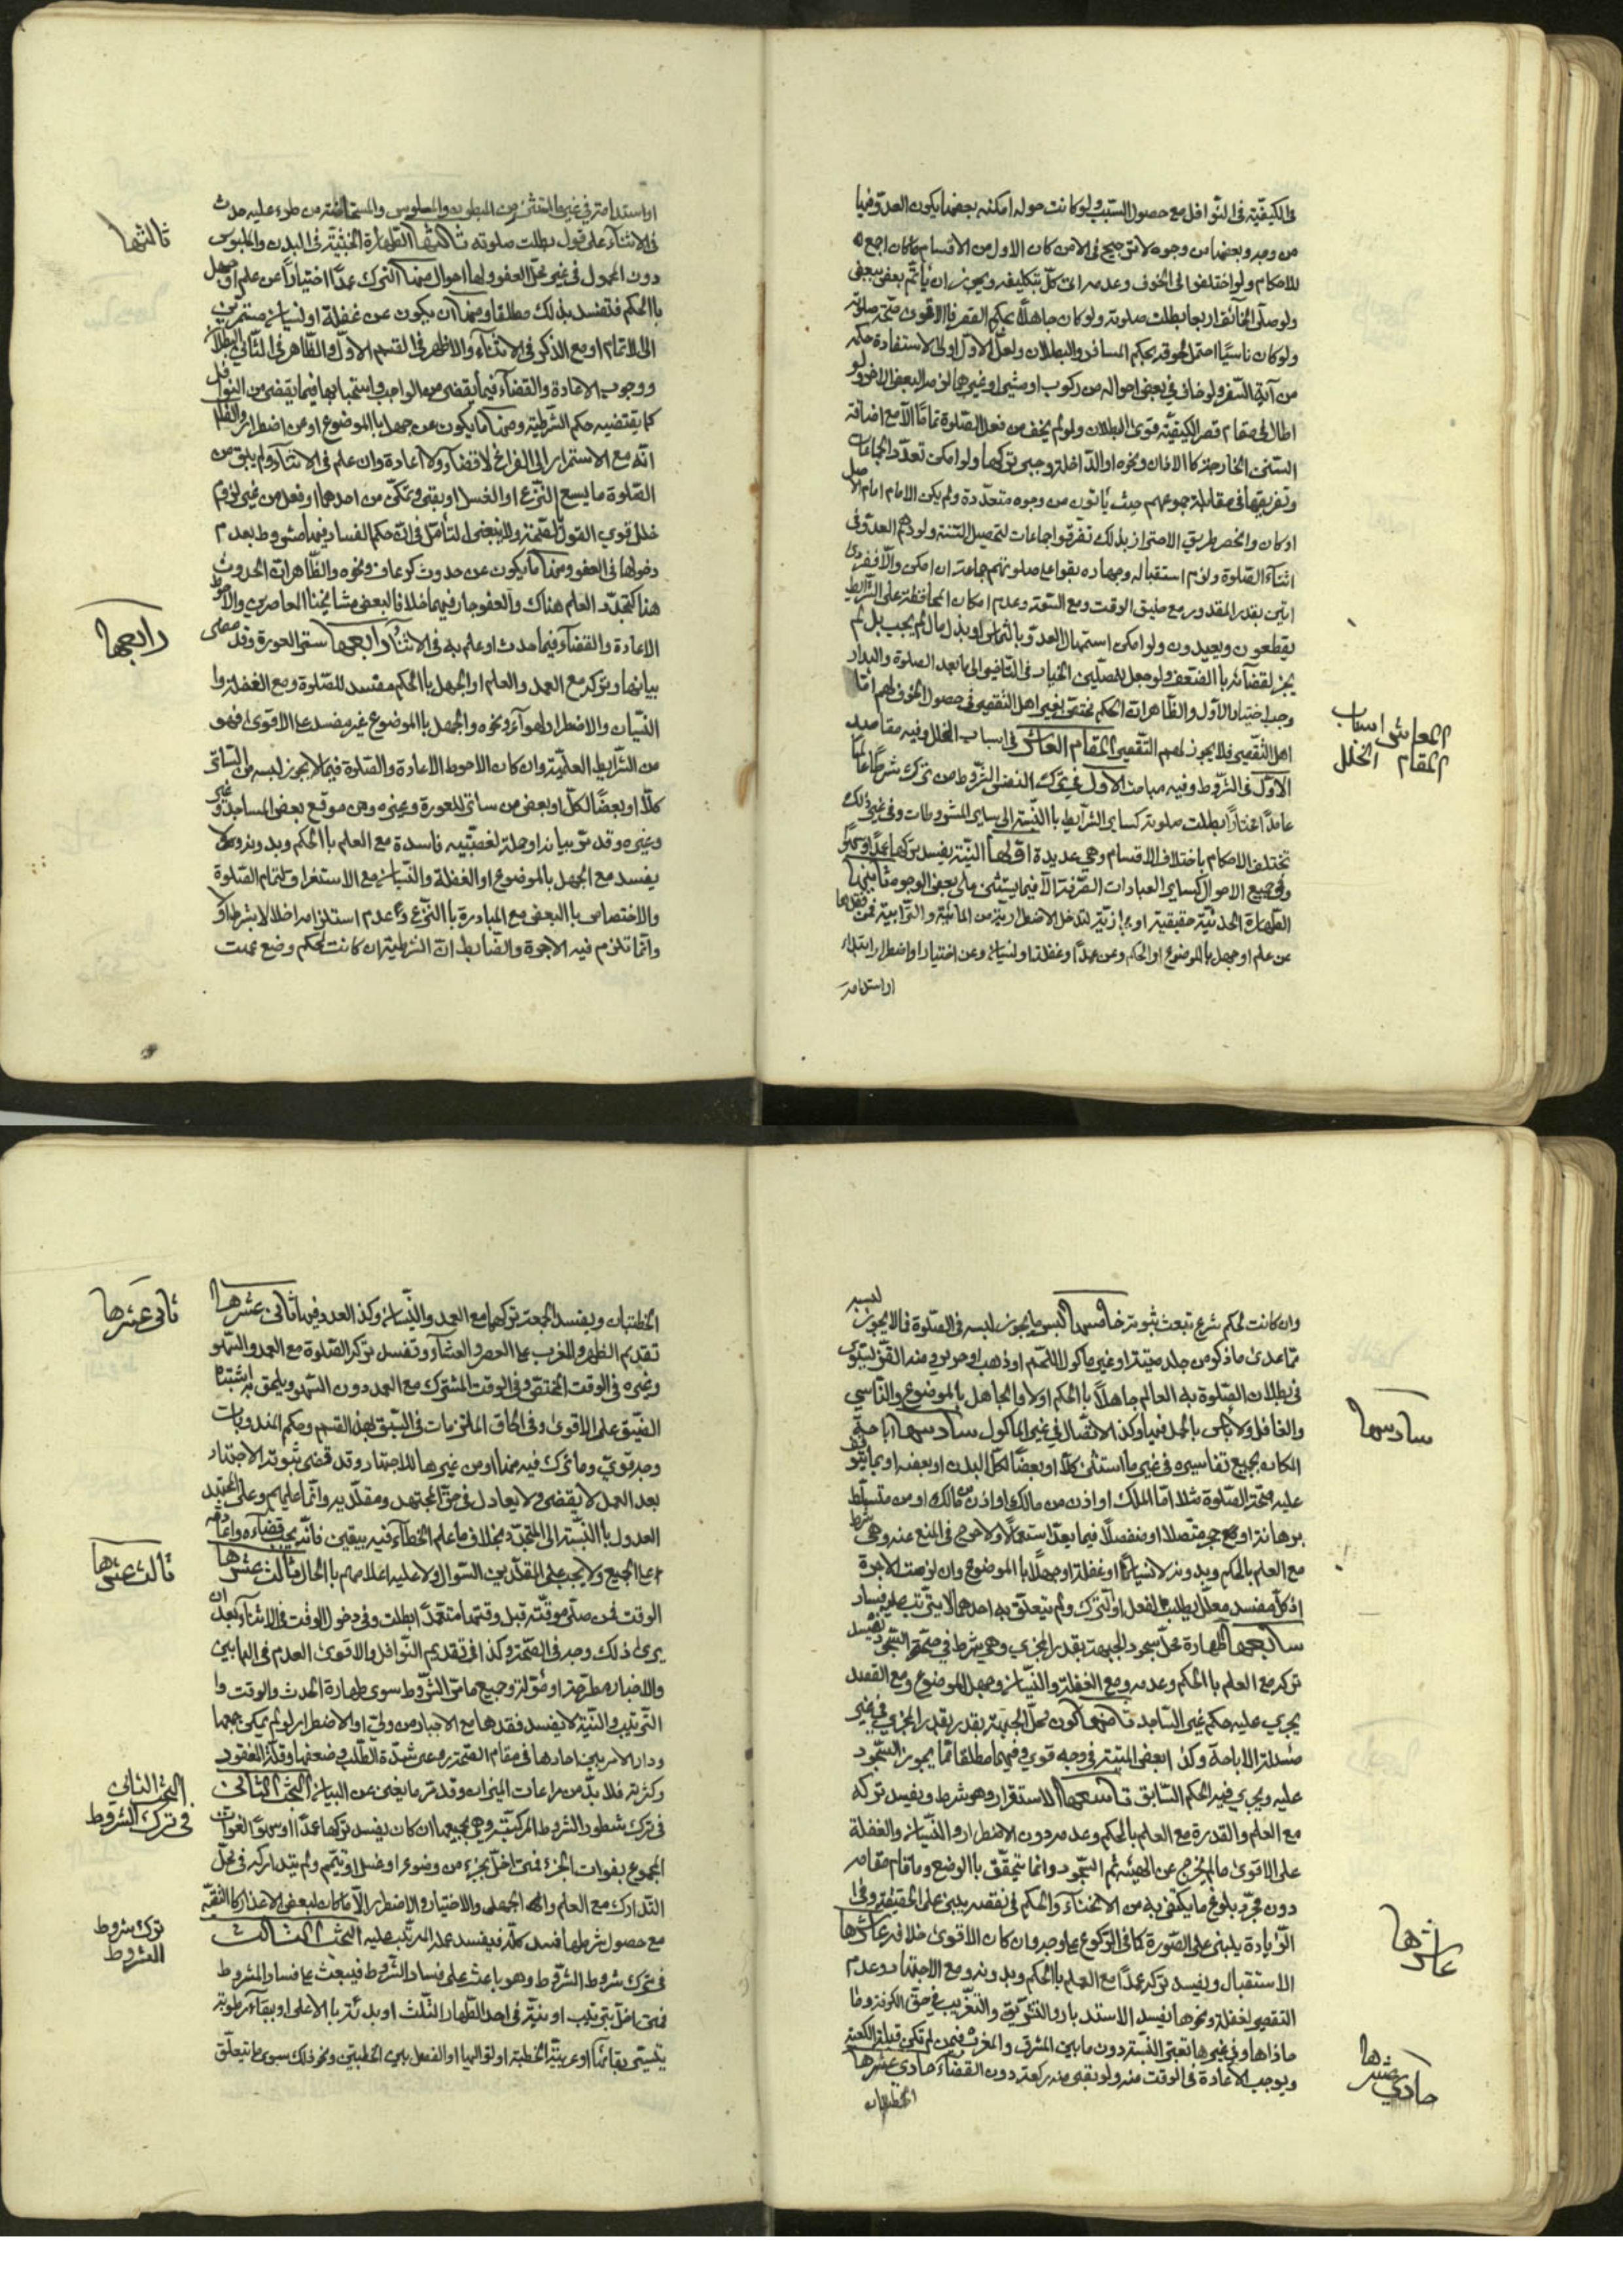 في الكيفيّة في النوافل مع حصول السبب ولو كانت حوله امكنة بعضها يكون العدوّ فيها
من وجه وبعضها من وجوه لا ترجيح في الامن كان الاول من الاقسام
للاحكام ولو اختلفوا في الخوف وعدمه اتى كلّ بتكليفه ويجوز ان ياتمّ بعض ببعض
ولو صلّى الخائف اربعا بطلت صلوته ولو كان جاهلا بحكم القصر فالاقوى صحّة صلوته
ولو كان ناسيا احتمل لحوقه بحكم المسافر والبطلان ولعلّ الاوّل اولى لاستفادة حكمه
من آية السفر ولو خاف في بعض احواله من ركوب او مشي او غيرهما لزمه البعض الاخر ولو
اطال في مقام قصر الكيفيّة قوي البطلان ولو لم يخف من فعل الصّلوة تماما الا مع اضافة
السنن الخارجة كالاذان ونحوه او الداخلة وجب تركها ولو امكن تعدّد الجماعات
وتفريقها في مقابلة جموعهم حيث ياتون من وجوه متعدّدة ولم يكن الامام امام الاصل
او كان وانحصر طريق الاحتراز بذلك تفرقوا جماعات لتحصيل السّنة ولو دهم العدوّ في
اثناء الصّلوة ولزم استقباله وجهاده بقوا على صلوتهم جماعة ان امكن والّا ففرادى
اتين بقدر المقدور مع ضيق الوقت ومع السّعة وعدم امكان المحافظة على الشرايط
يقطعون ويعيدون ولو امكن استمهال العدوّ بالتماس او بذل مال لم يجب بل لم
يجز لقضائه بالضّعف ولو جعل للمصلّين الخيار في التاخير الى ما بعد الصلوة والبدار
وجب اختيار الاوّل والظاهر ان الحكم مختصّ بغير اهل التقصير في حصول الخوف لهم امّا
اهل التّقصير فلا يجوز لهم التّقصير المقام العاشر في اسباب الخلل وفيه مقاصد
الاوّل في الشّروط وفيه مباحث الاول في ترك النفس الشّروط من ترك شرطا عالما
عامدا مختارا بطلت صلوته كساير الشرايط بالنّسبة الى ساير المشروطات وفي غير ذلك
تختلف الاحكام باختلاف الاقسام وهي عديدة اوّلها النيّة يفسد تركها عمدا وسهوا
وفي جميع الاحوال كساير العبادات الصّرفة الّا فيما يستثنى على بعض الوجوه ثانيها
الطّهارة الحدثيّة حقيقية او لتدخل الاضطرارية من المائية والترابية فمن فقدها
عن علم او جهل بالموضوع او الحكم وعن عمد او غفلة او نسيان وعن اختيار او اضطرار ابتداء
او استدامة
العاشر اسباب
المقام الخلل
او استدامة في غير المستثنى من المبطون والمسلوس والمستحاضة من طرء عليه حدث
في الاثناء على قول بطلت صلوته ثالثها الطّهارة الخبثيّة في البدن والملبوس
دون المحمول في غير محلّ العفو ولها احوال منها الترك عمدا اختيارا عن علم او جهل
بالحكم فتفسد بذلك مطلقا ومنها ان يكون عن غفلة او نسيان مستمرّين
الى الاتمام او مع الذكر في الاثناء والاظهر في القسم الاوّل والظّاهر في الثّاني البطلان
ووجوب الاعادة والقضاء فيما يقضى من الواجب واستحبابها فيما يقضى من النوافل
كما يقتضيه حكم الشّرطية ومنها ما يكون عن جهل بالموضوع او عن اضطرار والظاهر
انّه مع الاستمرار الى الفراغ لا قضاء ولا اعادة وان علم في الاثناء ولم يبق من
الصّلوة ما يسع النّزع او الغسل او بقي وتمكّن من احدهما او فعل من غير لزوم
خلل قوي القول بالصّحّة ولا ينبغي التأمّل في انّ حكم الفساد فيها مشروط بعدم
دخولها في العفو ومنها ما يكون عن حدوث كرعاف ونحوه والظّاهر انّ الحدوث
هنا كتجدّد العلم هناك والعفو جار فيهما خلافا لبعض مشايخنا المعاصرين والاحوط
الاعادة والقضاء فيما حدث او علم به في الاثناء رابعها ستر العورة وقد مضى
بيانها وتركه مع العمد والعلم او الجهل بالحكم مفسد للصّلوة ومع الغفلة وا
النّسيان والاضطرار لهواء ونحوه والجهل بالموضوع غير مفسد على الاقوى فهو
من الشّرايط العلميّة وان كان الاحوط الاعادة والصّلوة فيما لا يجوز لبسه من الساتر
كلّا او بعضا لكلّ او بعض من ساتر للعورة وغيره وهن موقع بعض المساجد وغير
وغيره وقد مرّ بيانه او جملة لغصبيّته فاسدة مع العلم بالحكم وبدونه ولا
يفسد مع الجهل بالموضوع او الغفلة والنّسيان مع الاستغراق لتمام الصّلوة
والاختصاص بالبعض مع المبادرة بالنّزع وعدم استلزامه اخلالا بشرط او
وانّما تلزم فيه الاجرة والضّابط انّ الشرطية ان كانت لحكم وضع عمت
ثالثها
رابعها
وان كانت لحكم شرع تبعت ثبوته خامسها لبس ما يجوز لبسه في الصّلوة فما لا يجوز لبسه
ممّا عدى ما ذكر من جلد ميتة او غير ماكول اللحم او ذهب او حرير ومنه القز يستوى
في بطلان الصّلوة به العالم جاهلا بالحكم اولا والجاهل بالموضوع والنّاسي
والغافل ولا باس بالحمل فيها وكذا الاتّصال في غير الماكول سادسها اباحة
المكان بجميع تفاسيره في غير ما استثنى كلّا او بعضا لكلّ البدن او بعضه او بما يتوقف
عليه صحّة الصّلوة شلا امّا الملك او اذن من مالك او اذن مالك او من متسلّط
متّصلا او منفصلا فيما يعدّ استعمالا ولا حرج في المنع عنه وهي شرط
مع العلم بالحكم وبدونه لا نسيانا او غفلة او جهلا بالموضوع وان لزمت الاجرة
سابعها طهارة محلّ سجود الجبهة بقدر المجزي وهي شرط في صحّة السّجود يفسد
تركه مع العلم بالحكم وعدمه ومع الغفلة والنّسيان وجهل الموضوع ومع القصد
يجري عليه حكم غير السّاجد ثامنها كون محلّ الجبهة بقدر المجزي في غير
الاباحة وكذا بعض الميتة في وجه قوي وفيهما مطلقا ممّا يجوز السّجود
عليه ويجري فيه الحكم السّابق تاسعها الاستقرار وهو شرط ويفسد تركه
مع العلم والقدرة مع العلم بالحكم وعدمه دون الاضطرار والنّسيان والغفلة
على الاقوى ما لم يخرج عن الهيئة ثم السّجود وانما يتحقّق بالوضع وما قام مقامه
دون مجرّد بلوغ ما يكتفى به من الانحناء والحكم في نقصه يبنى على الحقيقة وفي
الزّيادة يبتني على الصّورة كما في الرّكوع على وجه وان كان الاقوى خلافه عاشرها
الاستقبال ويفسد تركه عمدا مع العلم بالحكم وبدونه ومع الاجتهاد وعدم
التقصير لغفلة ونحوها يفسد الاستدبار والتشريق والتغريب في حقّ الكوفة وما
حاذاها وفي غيرها تعتبر النسبة دون ما بين المشرق والمغرب فيمن لم تكن قبلته الكعبة
ويوجب الاعادة في الوقت منه ولو بقي منه ركعة دون القضاء حادي عشرها
الخطبتان
سادسها
عاشرها
حادي عشرها
الخطبتان ويفسد الجمعة تركهما مع العمد والنّسيان وكذا العدد فيها ثاني عشرها
تقديم الظّهر والمغرب على العصر والعشاء وتفسد تركه الصّلوة مع العمد والسّهو
وغيره في الوقت المختصّ وفي الوقت المشترك مع العمد دون السّهو ويلحق اشتباه
الضّيق على الاقوى وفي الحاق الملتزمات في السّبق بهذا القسم وحكم المندوبات
وجه قويّ وما ترك فيه منها او من غيرها للاجتهاد وقد قضى بثبوته الاجتهاد
بعد العمل لا يقضى ولا يعاد في حقّ المجتهد ومقلّديه وانّما عليهم وعلى المجتهد
العدول بالنّسبة الى المتجدّد بخلاف ما علم الخطاء فيه بيقين فانّه يجب قضاؤه واعادته
على الجميع ولا يجب على المقلّدين السّوال ولا عليه اعلامهم بالحال ثالث عشرها
الوقت فمن صلّى موقّتة قبل وقتها متعمّدا بطلت وفي دخول الوقت في الاثناء بعد ان
يرى ذلك وجه في الصّحّة وكذا في تقديم النّوافل والاقوى العدم في المانعين
والاخبار مطرحة او مؤوّلة وجميع ما مرّ من الشّروط سوى طهارة الحدث والوقت وا
الترتيب والنيّة لا يفسد فقدها مع الاجبار من وليّ او الاضطرار لو لم يمكن جمعها
ودار الامر بين احادها في مقام الصّحّة روعي شدّة الطّلب وضعفها وقلّة المفقود
وكثرته فلا بدّ من مراعات الميزان وقد مرّ ما يغني عن البيان البحث الثّاني
في ترك شطور الشّروط المركّبة وهي بجميعها ان كان يفسد تركها عمدا او سهوا لفوات
المجموع بفوات الجزء فمتى اخلّ بجزء من وضوء او غسل او تيمّم ولم يتداركه في محلّ
التّدارك مع العلم والجهل والاختيار والاضطرار الّا ما كان لبعض الاعذار كالتقيّة
مع حصول شرطها فسد كلّه فيفسد عمله المرتّب عليه البحث الثالث
في ترك شروط الشّروط وهو باعث على فساد الشّروط فيبعث على فساد المشروط
فمتى اخلّ بترتيب او نيّة في احد الطّهارات الثّلث او بدئة بالاعلى او بقاء رطوبة
او عربيّة الخطبة او توالها او الفصل بين الخطبتين ونحو ذلك سوى ما يتعلّق
ثاني عشرها
ثالث عشرها
البحث الثاني
في ترك الشروط
ترك شروط
الشروط